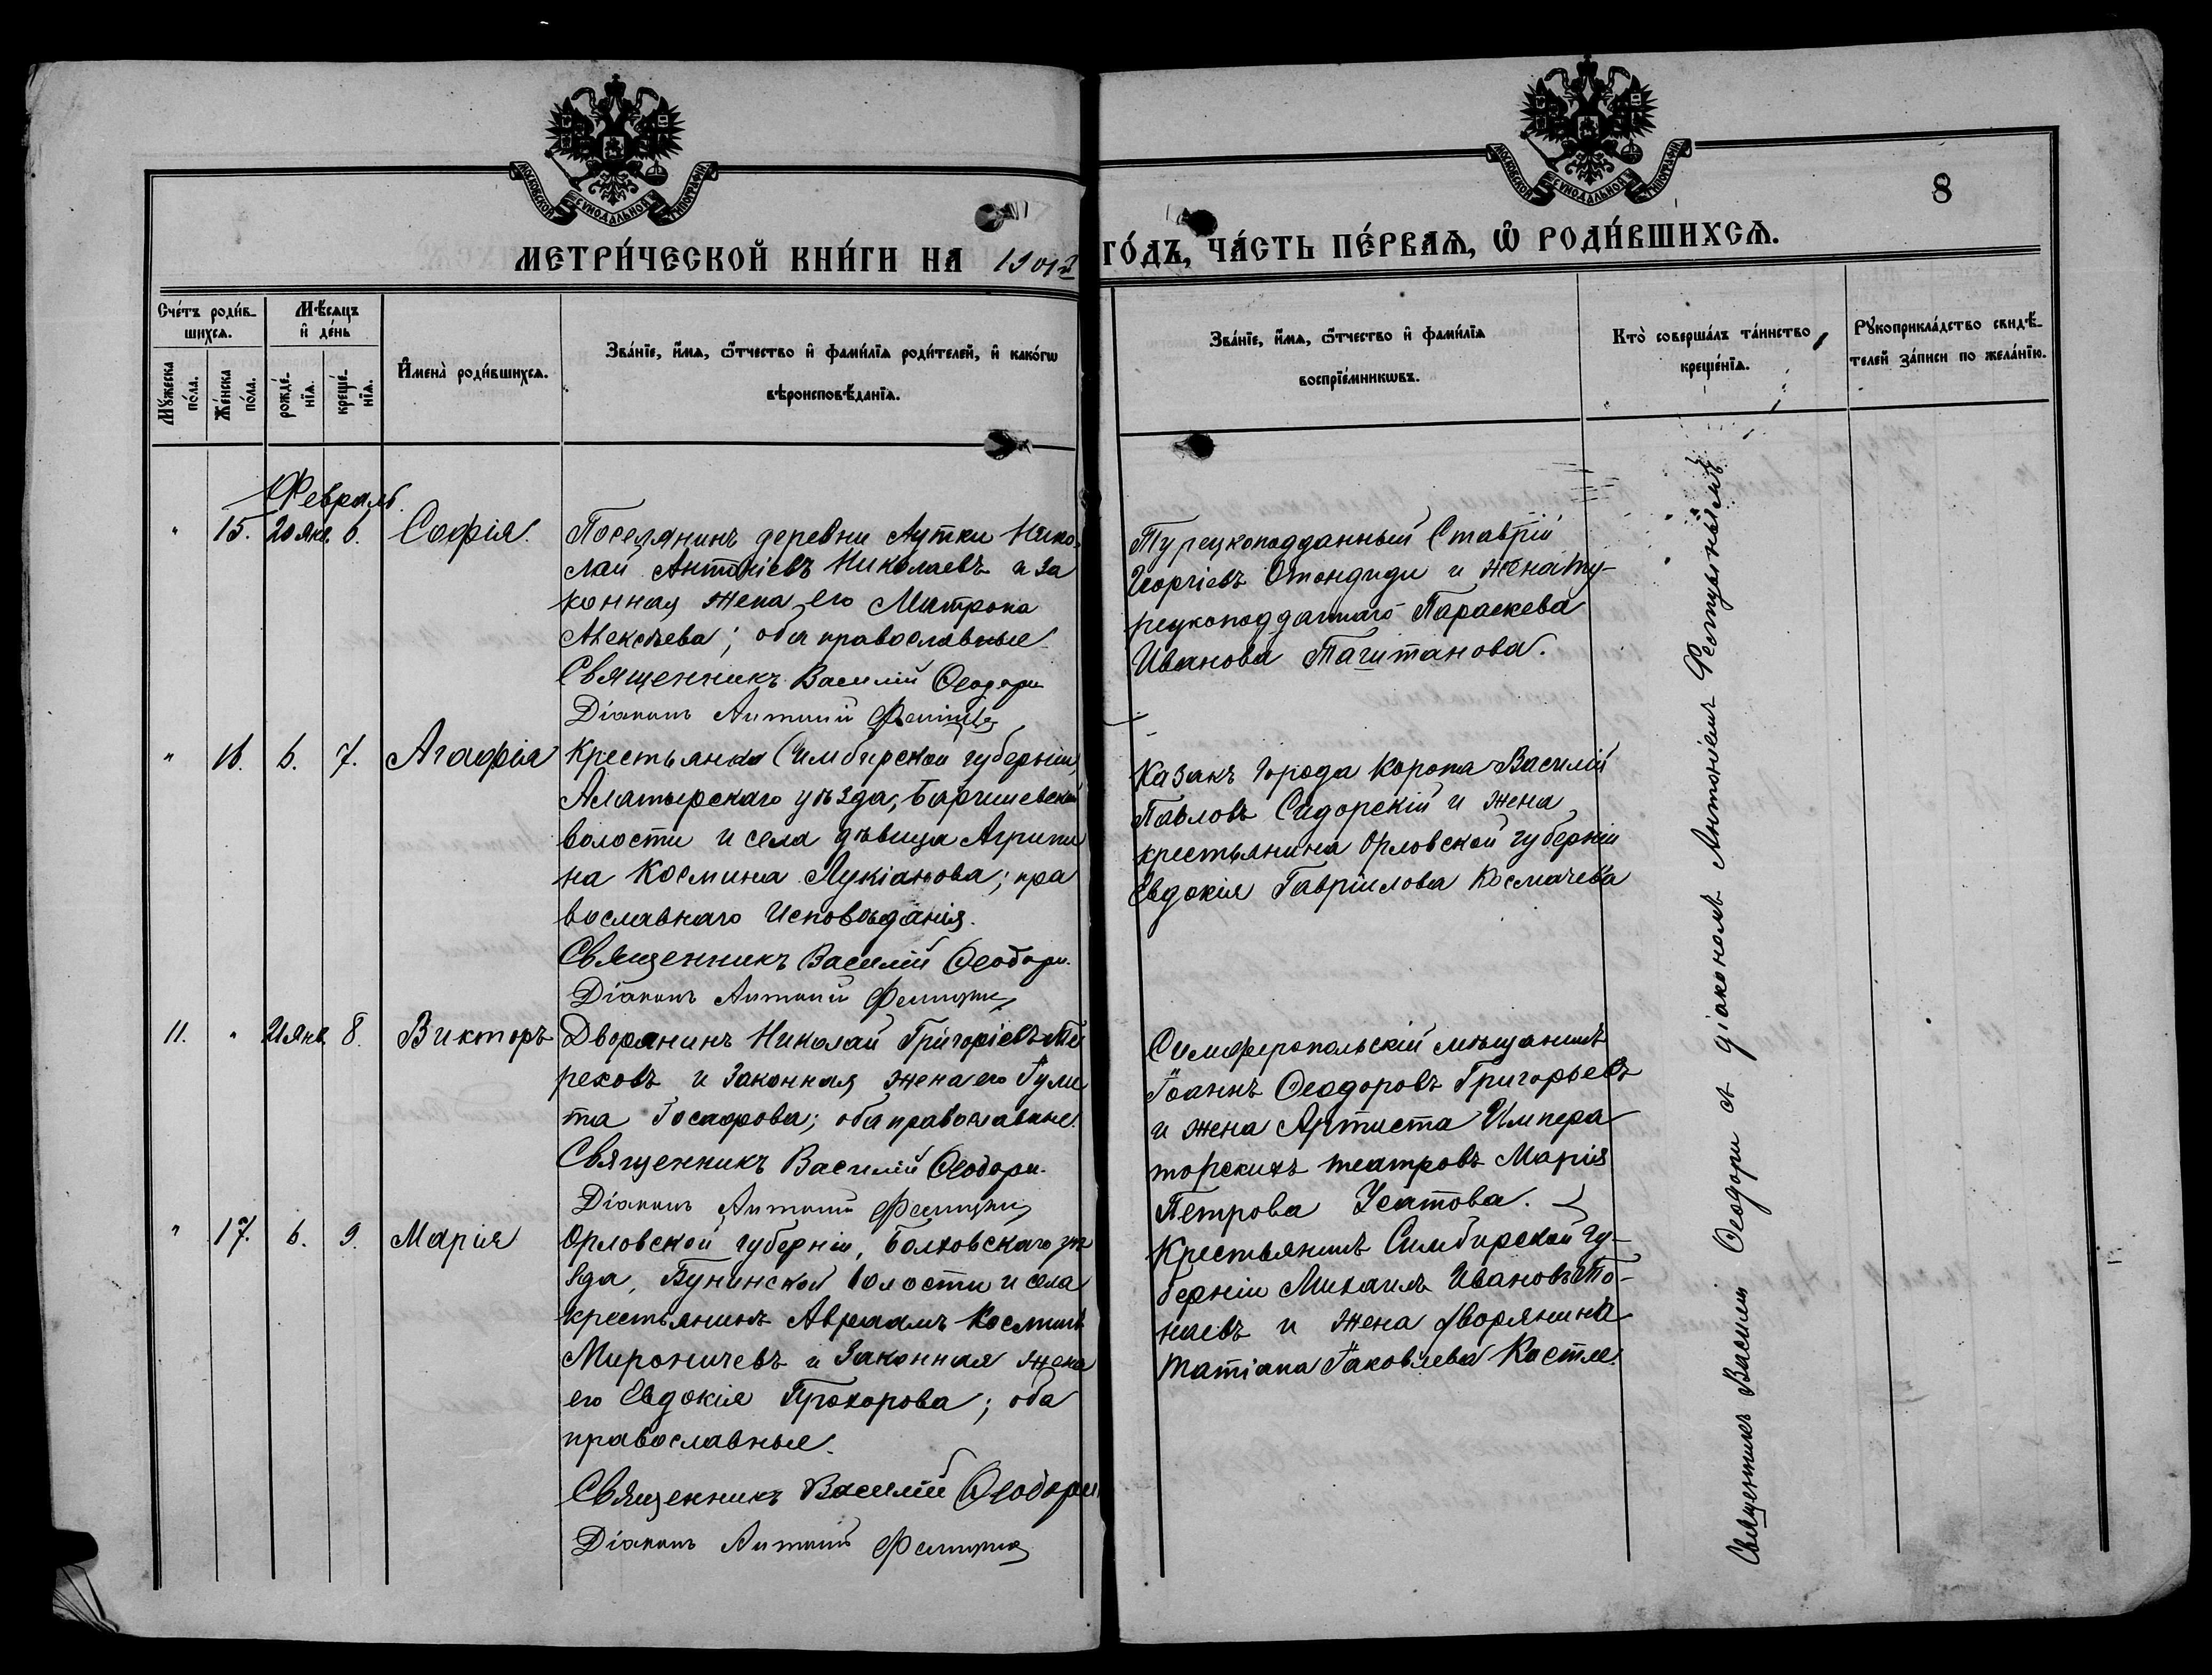 МОСКОВСКОЙ СѴНОДАЛЬНОЙ ТИПОГРАФІИ
МОСКОВСКОЙ СѴНОДАЛЬНОЙ ТИПОГРАФІИ
8
МЕТРИ́ЧЕСКОЙ КНИ́ГИ НА 1901й ГО́ДЪ, ЧА́СТЬ ПЕ́РВАЯ, Ѡ РОДИ́ВШИХСЯ.
Сче́тъ роди́в-
шихся.
Мꙋжеска по́ла.
Же́нска по́ла.
Мѣ́сяцъ
и҆ де́нь
рожде́-
нїя.
креще́-
нїя.
И҆мена̀ роди́вшихся.
Зва́нїе, и҆́мя, ѻ҆́тчество и҆ фами́лїя роди́телей, и҆ како́гѡ
вѣроисповѣ́данїя.
Зва́нїе, и҆́мя, ѻ҆́тчество и҆ фами́лїя
воспрїе́мникѡвъ.
Кто̀ соверша́лъ та́инство
креще́нїя.
Рꙋкоприкла́дство свидѣ́-
телей за́писи по жела́нїю.
Февраль.
" 15. 20 янв. 6. Софія.
Поселянинъ деревни Аутки Нико-
лай Антоніевъ Николаевъ и за
конная жена его Матрона
Алексѣева; оба православные.
Священникъ Василій Ѳеодори
Діаконъ Антоній
Турецкоподданный Ставрій
Георгіевъ Отондиди и жена ту-
рецкоподданнаго Параскева
Иванова Пагитанова.
" 16. 6. 7. Агафія
Крестьянка Симбирской губерніи,
Алатырскаго уѣзда, Барышевской
волости и села дѣвица Агрипи
на Космина Лукіанова; пра
вославнаго исповѣданія.
Священникъ Василій Ѳеодори.
Діаконъ Антоній
Казакъ города Коропа Василій
Павловъ Сидорскій и жена
крестьянина Орловской губерніи
Евдокія Гавріилова Космачева
11. " 21 янв. 8. Викторъ
Дворянинъ Николай Григоріевъ Те
реховъ и законная жена его Іули
та Іосафова; оба православные.
Священникъ Василій Ѳеодори.
Діаконъ Антоній
Симферопольскій мѣщанинъ
Іоаннъ Ѳеодоровъ Григорьевъ
и жена Артиста Импера
торскихъ театровъ Марія
Петрова Усатова.
" 17. 6. 9. Марія
Орловской губерніи, Болховскаго уѣ
зда, Бунинской волости и села
крестьянинъ Авраамъ Косминъ
Мироничевъ и законная жена
его Евдокія Прохорова; оба
православные.
Священникъ Василій Ѳеодори
Діаконъ Антоній
Крестьянинъ Симбирской гу-
берніи Михаилъ Ивановъ
и жена дворянина
Татіана Іаковлева
Священникъ Василій Ѳеодори съ діакономъ Антоніемъ